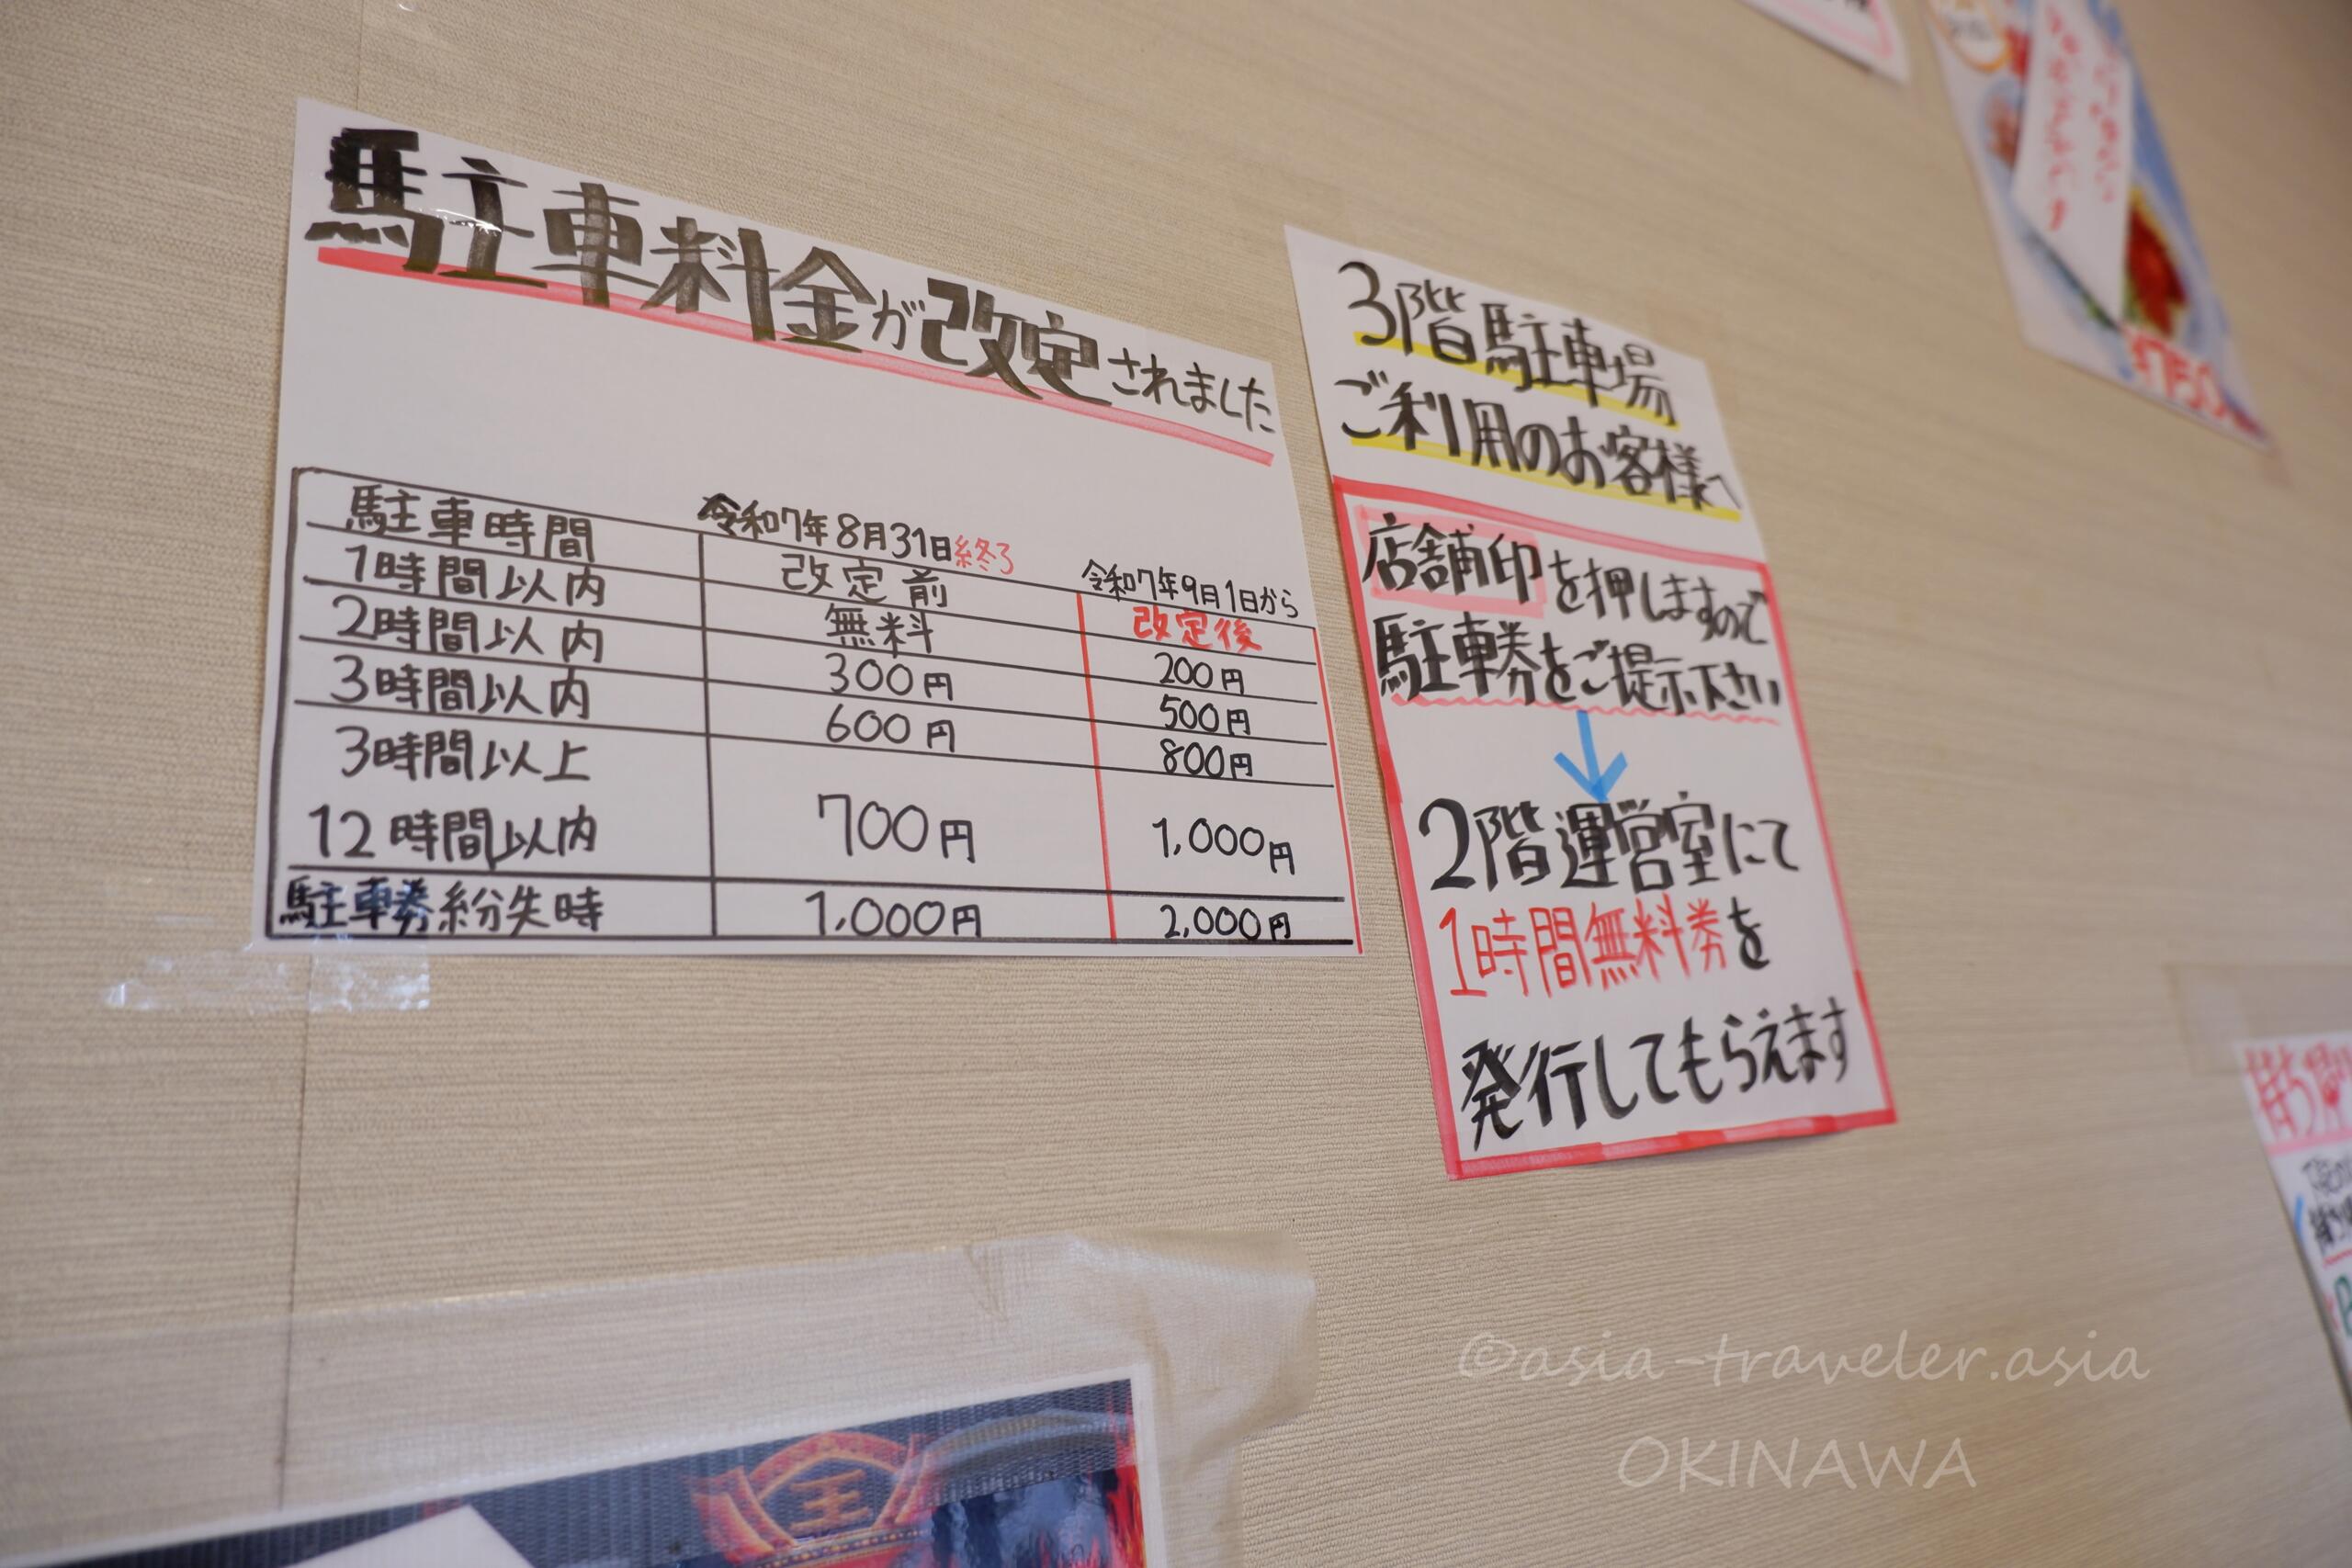 駐車料金が改定されました
令和7年8月31日終了
令和7年9月1日から
駐車時間 改定前 改定後
1時間以内 無料 200円
2時間以内 300円 500円
3時間以内 600円 800円
3時間以上
12時間以内 700円 1,000円
駐車券紛失時 1,000円 2,000円
3階駐車場
ご利用のお客様へ
店舗印を押しますので
駐車券をご提示下さい
↓
2階運営室にて
1時間無料券を
発行してもらえます
¥750
王
©asia-traveler.asia
OKINAWA